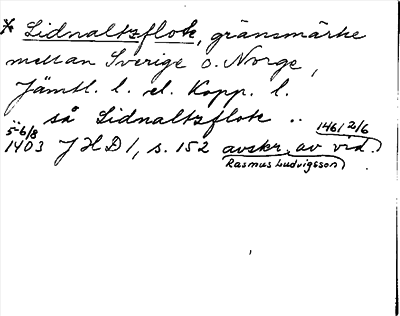 * Lidnaltzflok, gränsmärke
mellan Sverige o. Norge,
Jämtl. l. el. Kopp. l.
så Lidnaltzflok ..
5-6/8 1461 2/6
1403 JHD 1, s. 152 avskr. av vid.
Rasmus Ludvigsson